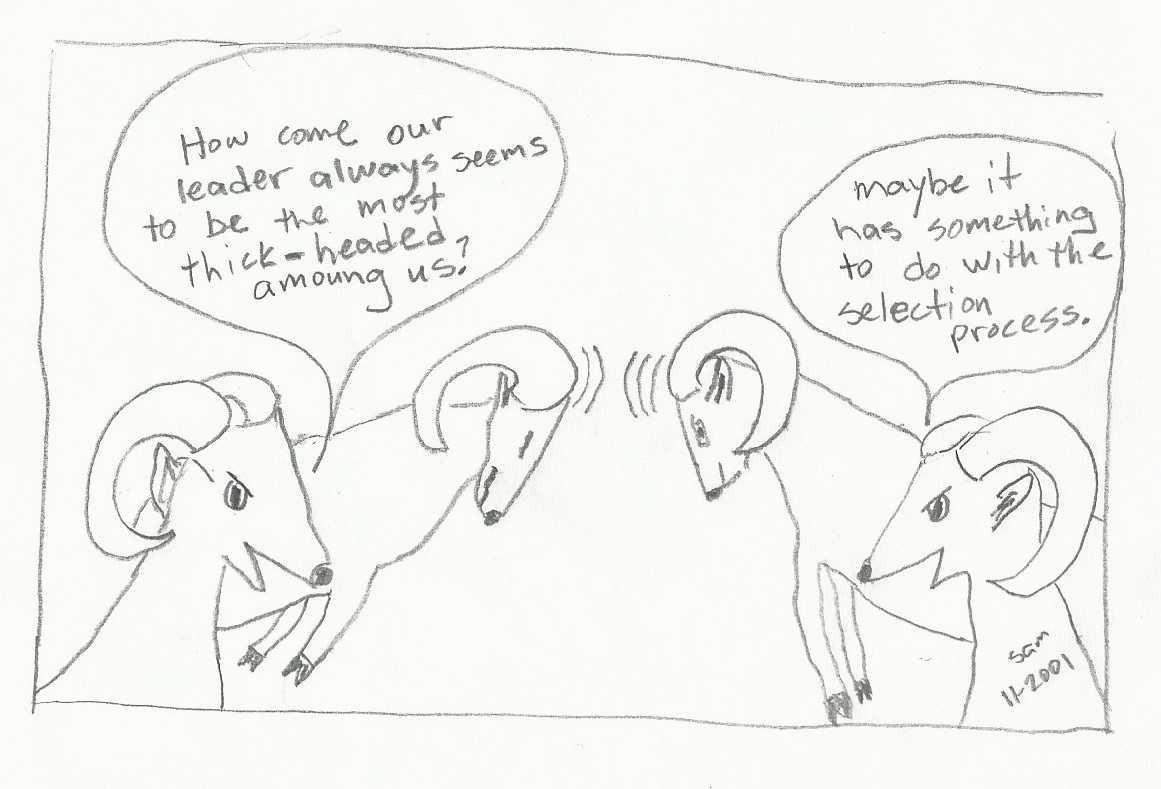 How come our
leader always seems
to be the most
thick-headed
amoung us?
maybe it
has something
to do with the
selection
process.
sam
11-2001